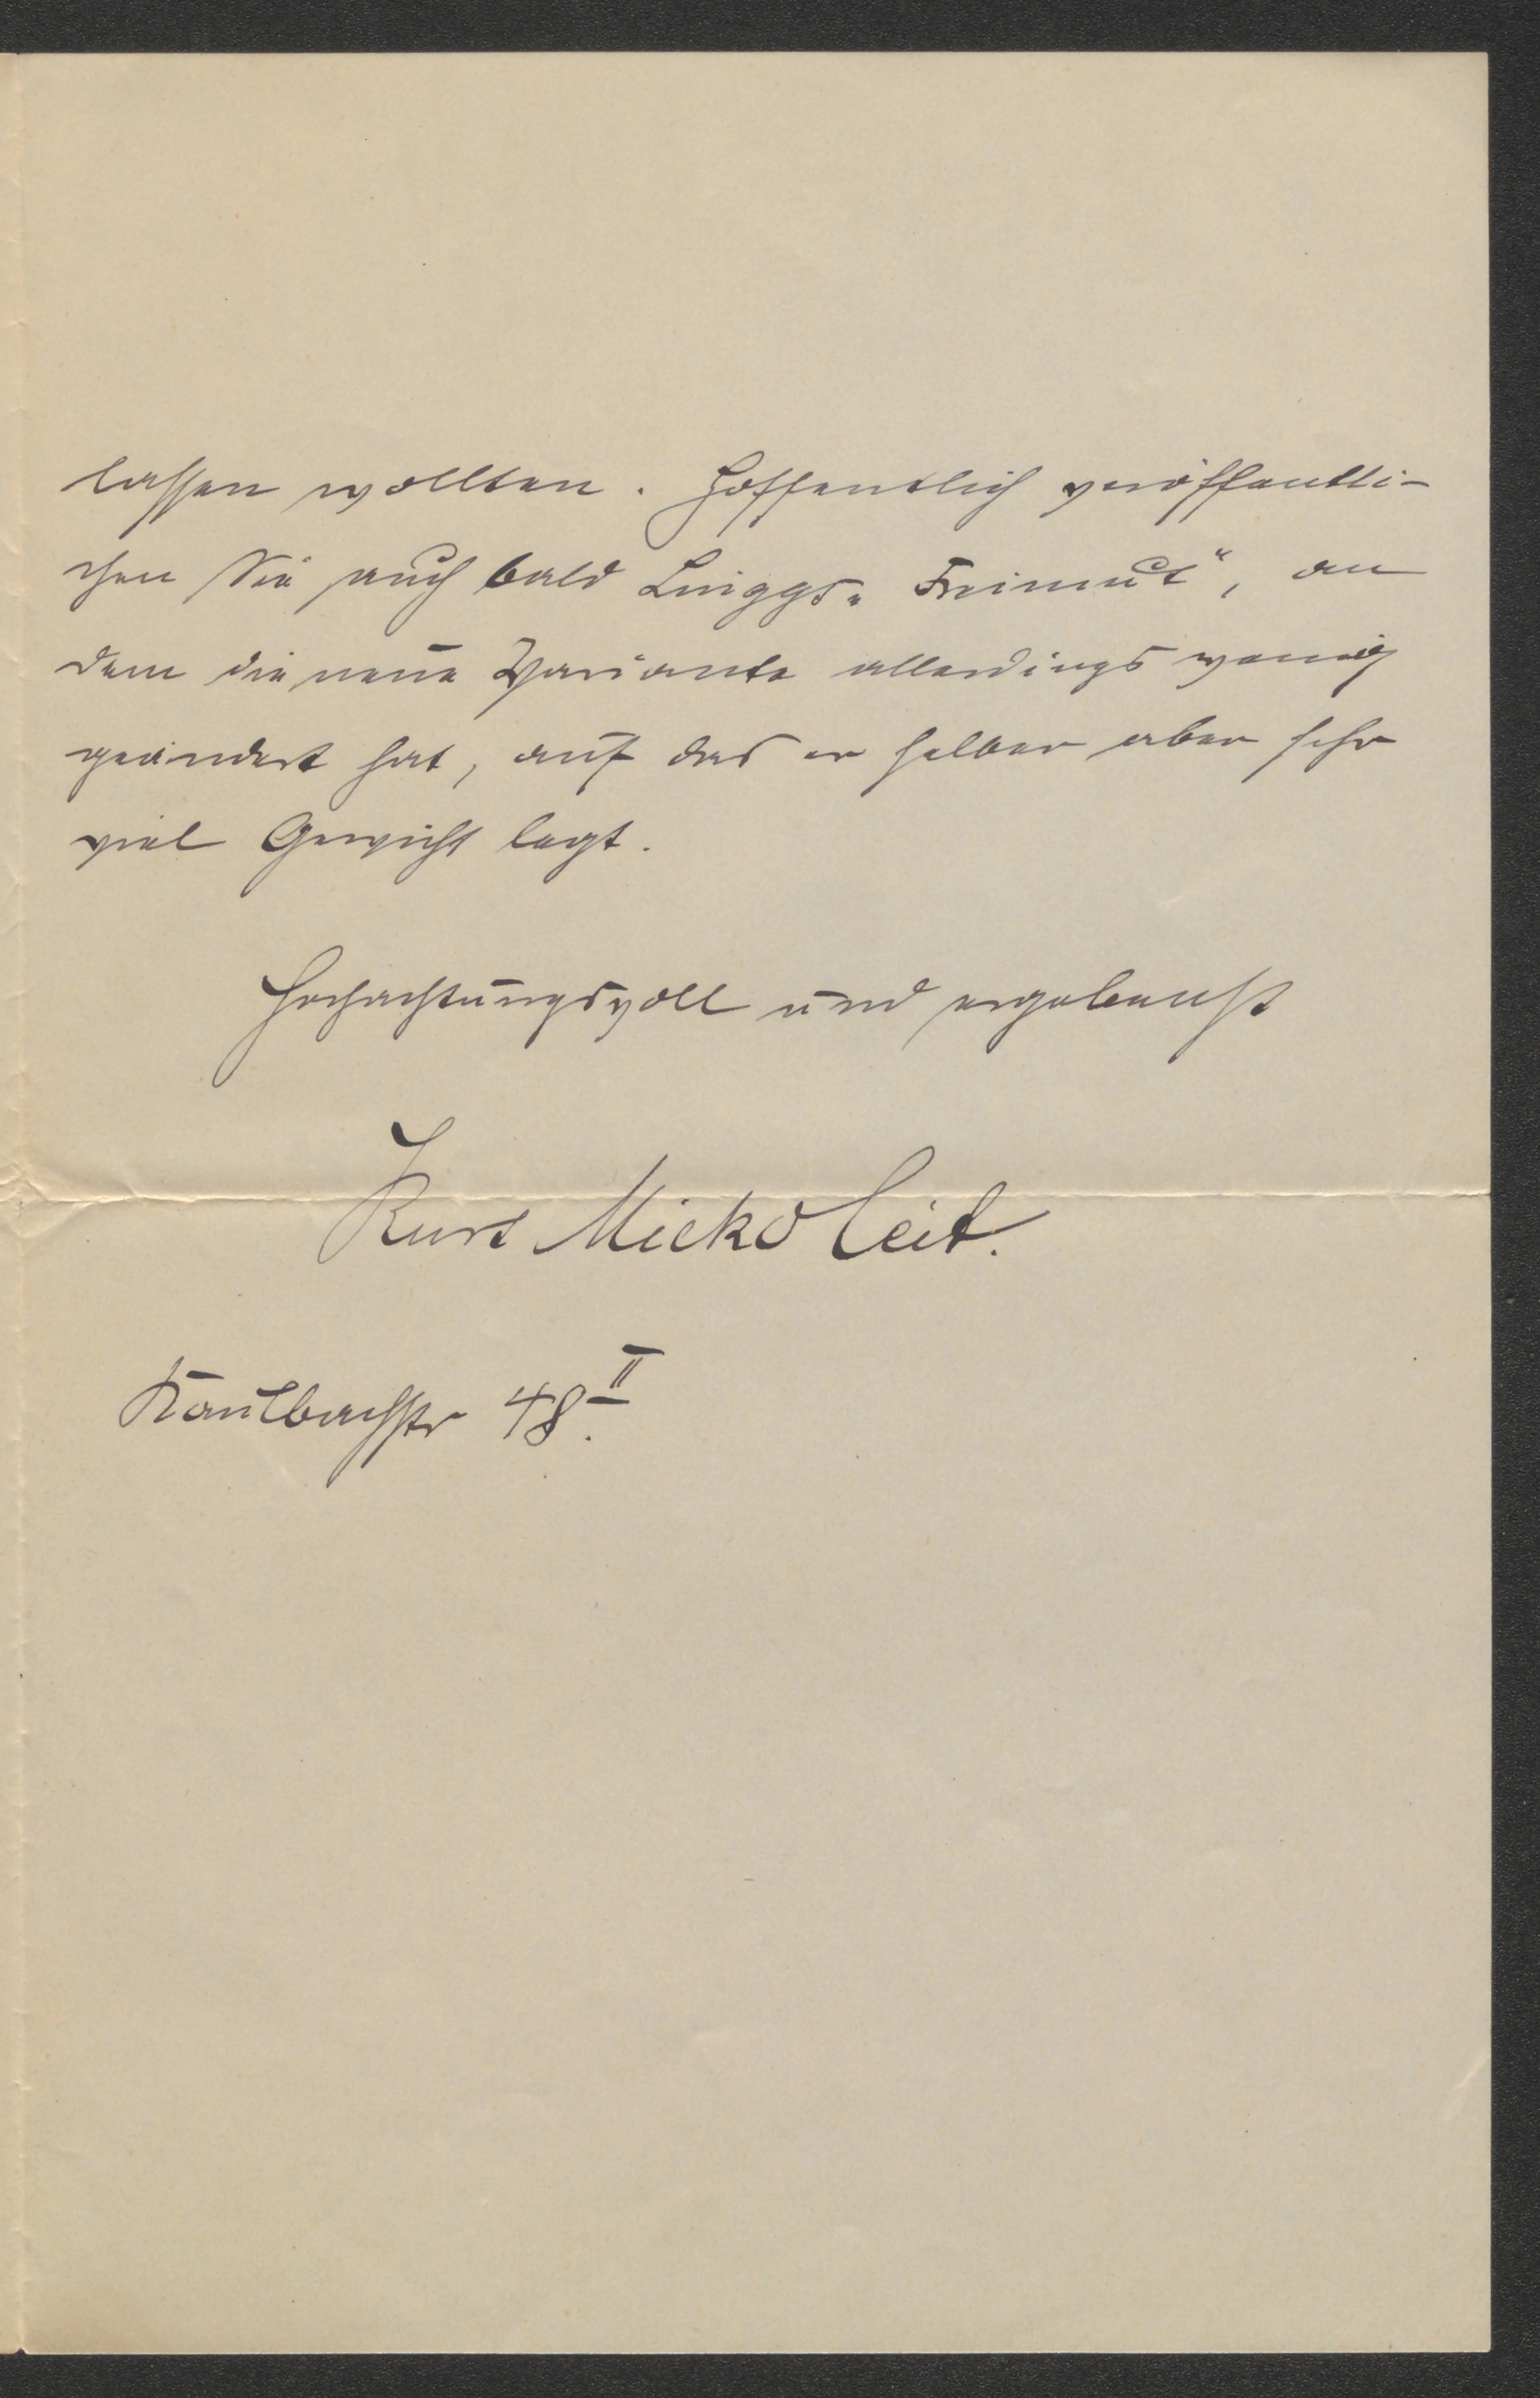 lassen wollten. Hoffentlich veröffentli-
chen Sie auch bald Linggs „Freimut“, an
dem die neue Variante allerdings wenig
geändert hat, auf das er selber aber sehr
viel Gewicht legt.
Hochachtungsvoll und ergebenst
Kurt Mickoleit.
Kaulbachstr 48.II